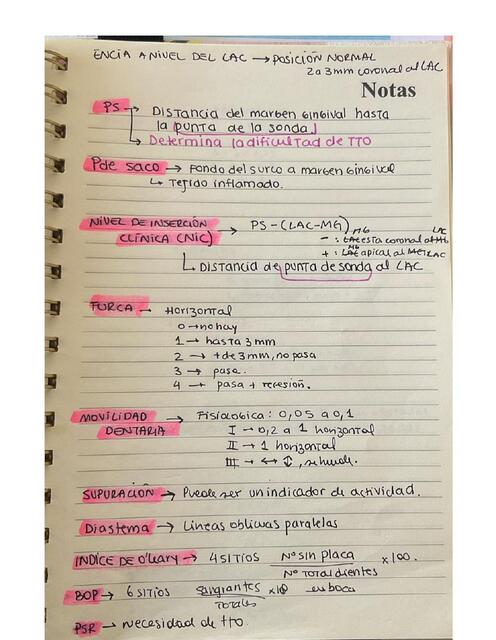 ENCIA A NIVEL DEL LAC → POSICIÓN NORMAL
2 a 3 mm coronal al LAC
Notas
PS → DISTANCIA del margen gingival hasta
la punta de la sonda
↳ Determina la dificultad de TTO
P de saco → Fondo del surco a margen gingival
↳ Tejido inflamado.
NIVEL DE INSERCIÓN → PS - (LAC-MG)
CLÍNICA (NIC)
- : MG esta coronal al LAC
+ : MG apical al LAC
↳ DISTANCIA de punta de sonda al LAC
FURCA → Horizontal
0 → no hay
1 → hasta 3 mm
2 → + de 3 mm, no pasa
3 → pasa.
4 → pasa + recesión.
MOVILIDAD → Fisiologica: 0,05 a 0,1
DENTARIA I → 0,2 a 1 horizontal
II → 1 horizontal
III → ↔ ↕, se hunde.
SUPURACION → Puede ser un indicador de actividad.
Diastema → Lineas oblicuas paralelas
INDICE DE O'Leary → 4 SITIOS Nº sin placa x 100.
Nº TOTAL dientes
BOP → 6 sitios sangrantes x 100 en boca
Totales
PSR → necesidad de tto